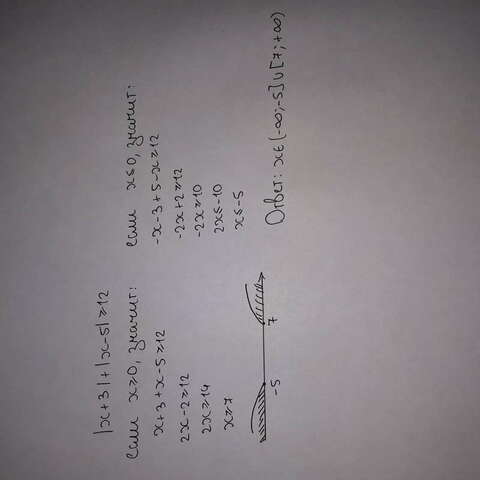 |x+3|+|x-5|≥12
если x≥0, значит:
x+3+x-5≥12
2x-2≥12
2x≥14
x≥7
если x≤0, значит:
-x-3+5-x≥12
-2x+2≥12
-2x≥10
2x≤-10
x≤-5
-5 7
Ответ: x∈(-∞;-5]∪[7;+∞)